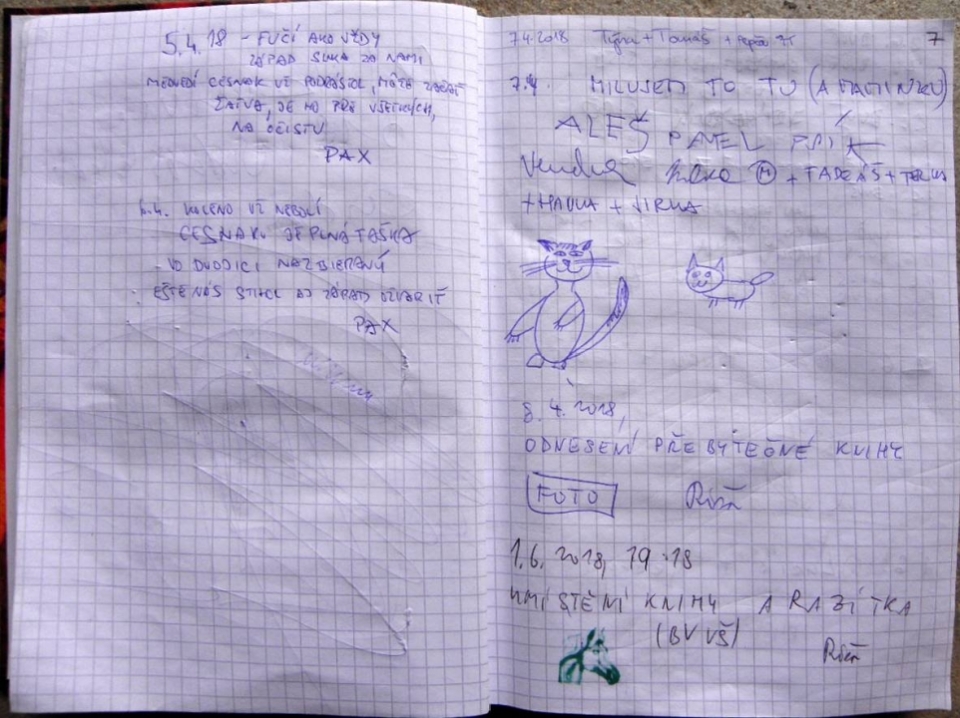 5.4.18 - FUČÍ AKO VŽDY
ZÁPAD SLNKA ZA NAMI
MEDVEDÍ CESNAK UŽ MÔŽE ZAČAŤ
ŽATVA, JE HO PRE VŠETKÝCH,
NA OČISTU
PAX
6.4. UŽ NEBOLÍ
CESNAKU JE PLNÁ TAŠKA
VO DVOJICI NAZBIERANÝ
EŠTE NÁS ZÁPAD
PAX
7.4.2018 Tygra + Tomáš +
7
7.4. MILUJEM TO TU (A MAMINKU)
ALEŠ PAVEL
Vendula + TADEÁŠ +
+ HANKA + JIRKA
8.4.2018,
ODNESENÍ PŘEBYTEČNÉ KNIHY
FOTO Ríša
1.6.2018, 19:18
UMÍSTĚNÍ KNIHY A RAZÍTKA
(BVVŠ)
Ríša